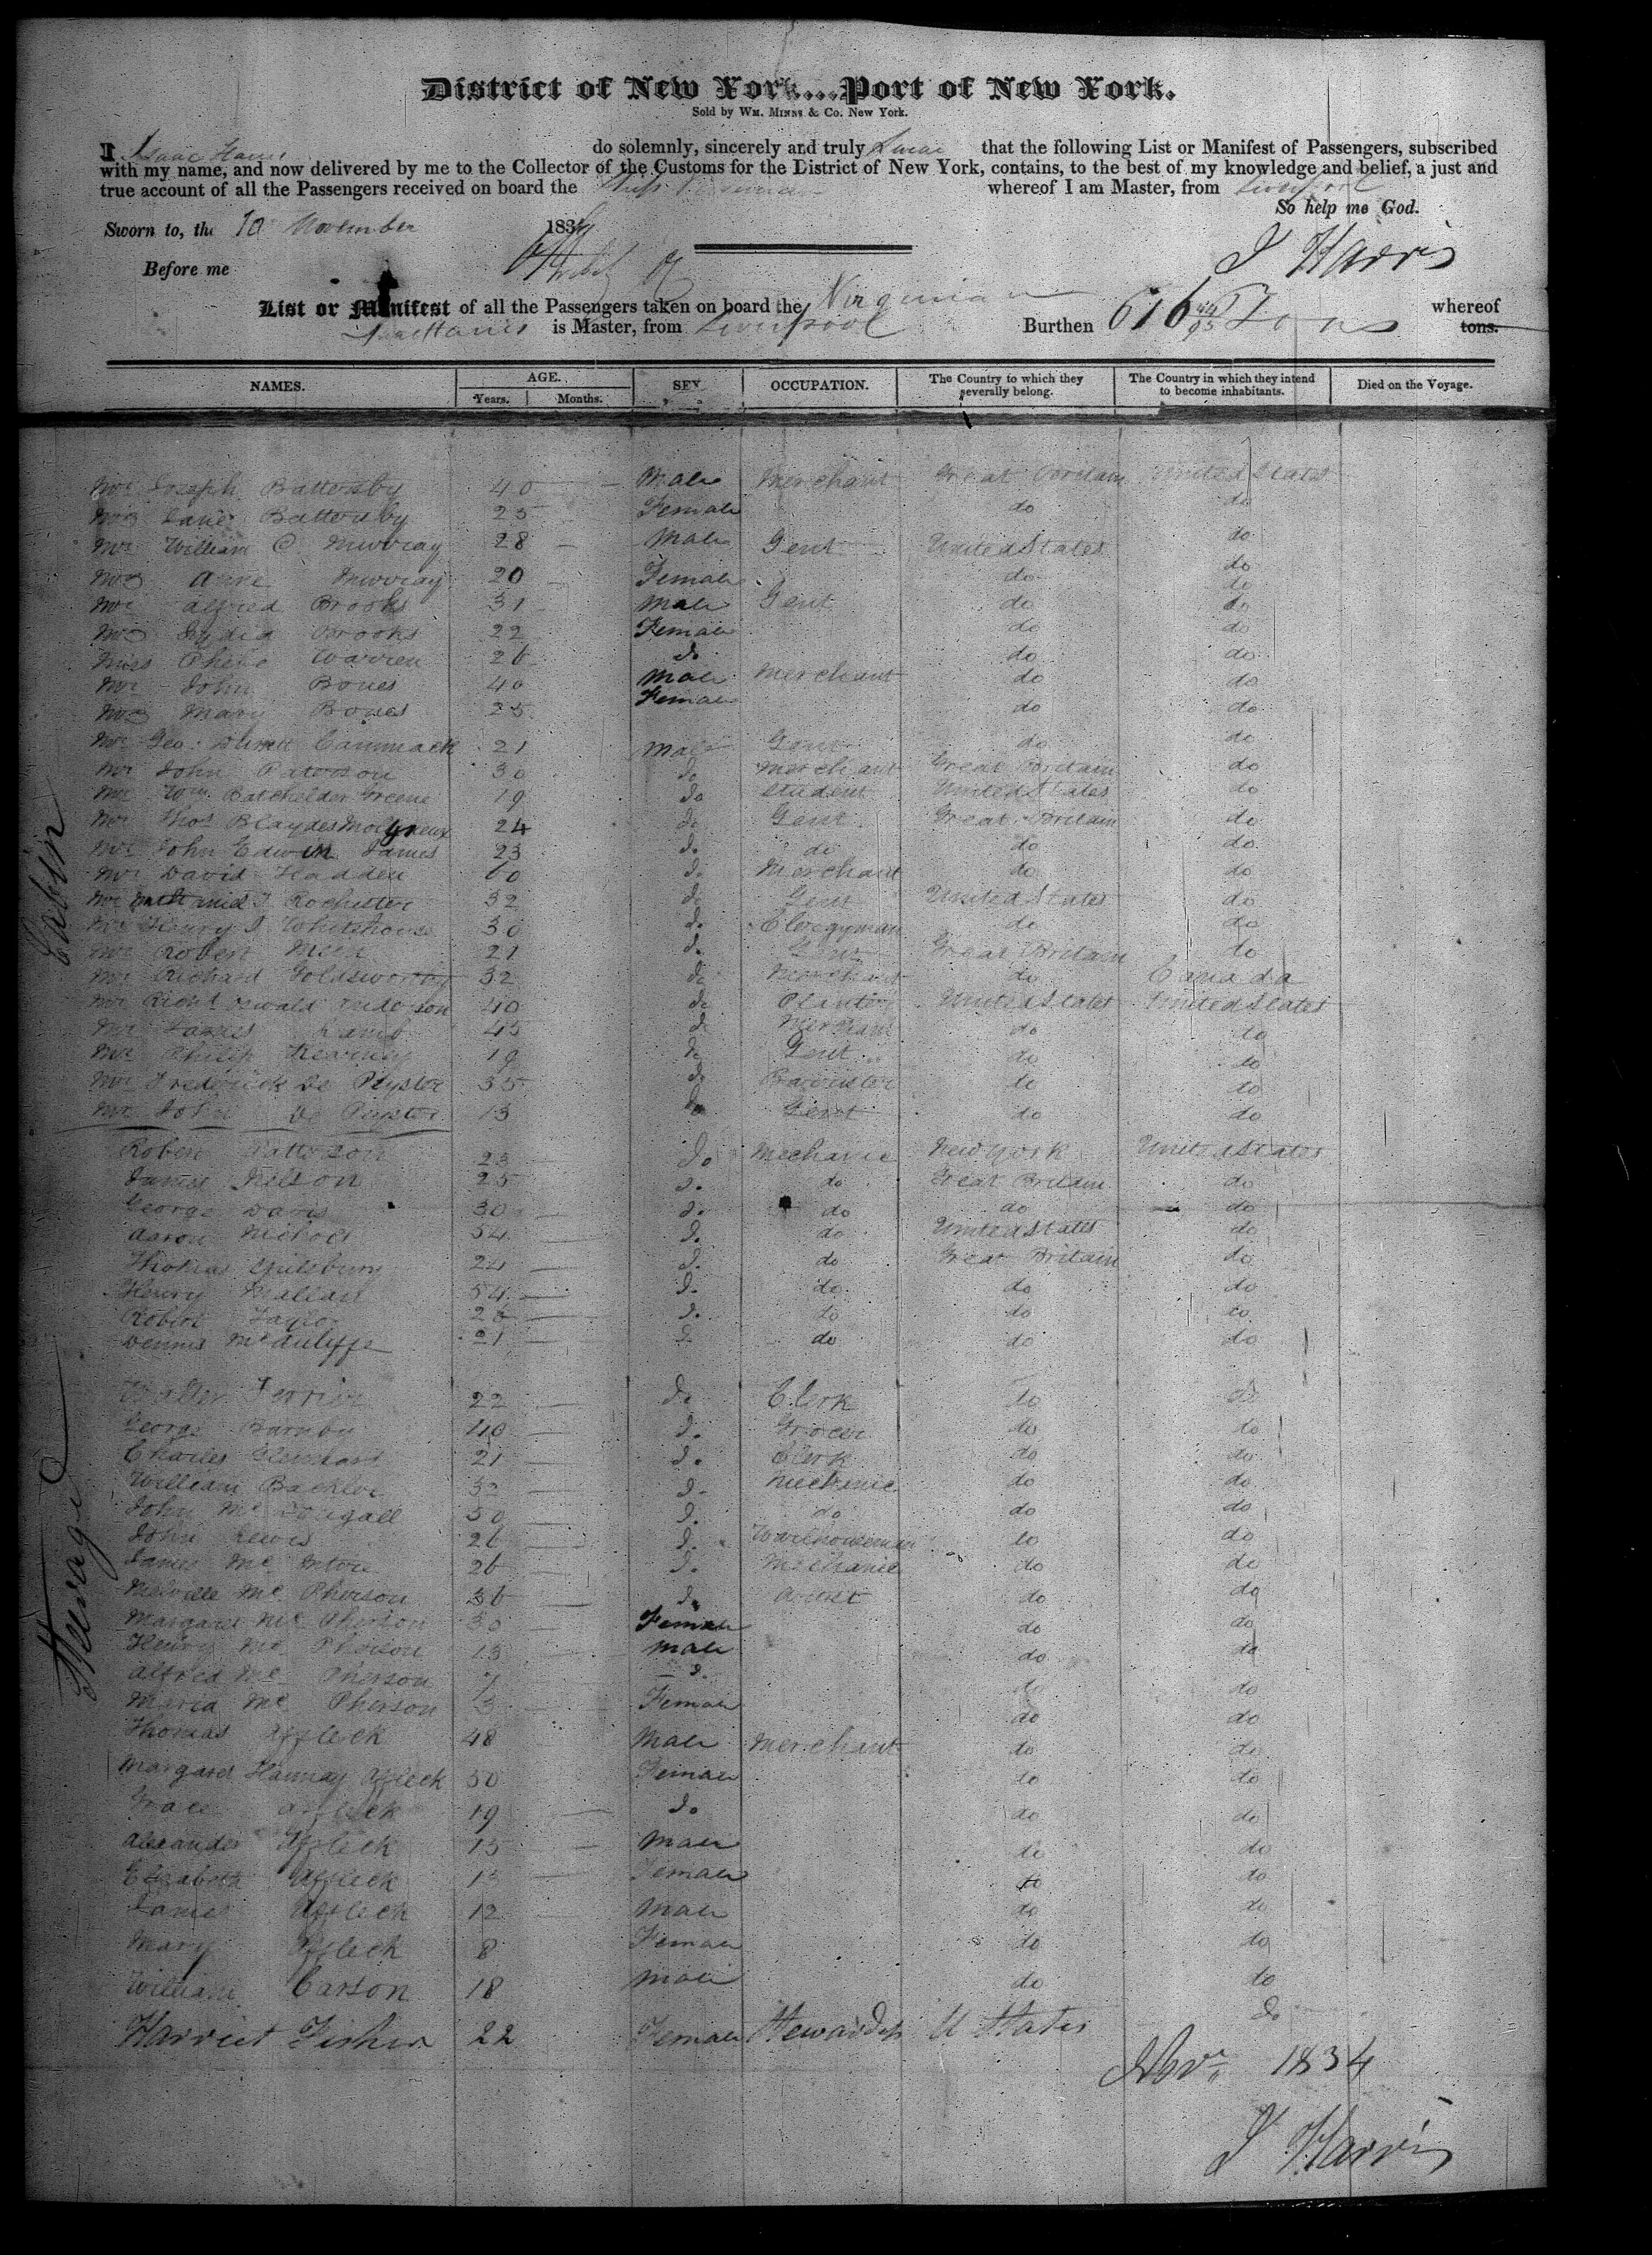 District of New York...Port of New York.
Sold by Wm. Minns & Co. New York.
I Isaac Harris do solemnly, sincerely and truly Swear that the following List or Manifest of Passengers, subscribed
with my name, and now delivered by me to the Collector of the Customs for the District of New York, contains, to the best of my knowledge and belief, a just and
true account of all the Passengers received on board the Ship Virginian whereof I am Master, from Liverpool
So help me God.
Sworn to, the 10 November 1834
Before me
I Harris
List or Manifest of all the Passengers taken on board the Virginian whereof
Isaac Harris is Master, from Liverpool Burthen 616 44/95 Tons tons.
NAMES. AGE. SEX OCCUPATION. The Country to which they severally belong. The Country in which they intend to become inhabitants. Died on the Voyage.
Years. Months.
Cabin
Mr Joseph Battersby 40 Male Merchant Great Britain United States
Mrs Jane Battersby 25 Female do do
Mr William C Murray 28 Male Gent United States do
Mrs Anne Murray 20 Female do do
Mr Alfred Brooks 31 Male Gent do do
Mrs Lydia Brooks 22 Female do do
Miss Phebe Warren 26 do do do
Mr John Bones 40 Male Merchant do do
Mrs Mary Bones 25 Female do do
Mr Geo. Cammack 21 Male Gent do do
Mr John Paterson 30 do Merchant Great Britain do
Mr Wm. Batchelder Greene 19 do Student United States do
Mr Thos Blaydes Molyneux 24 do Gent Great Britain do
Mr John Edwin James 23 do do do do
Mr David Hadden 60 do Merchant do do
Mr Nathaniel T Rochester 32 do Gent United States do
Mr Henry J Whitehouse 30 do Clergyman do do
Mr Robert 21 do Gent Great Britain do
Mr Richard Goldsworthy 32 do Merchant do Canada
Mr Richd Oswald Anderson 40 do Planter United States United States
Mr James Lamb 45 do Merchant do do
Mr Philip Kearney 19 do Gent do do
Mr Frederick De Peyster 35 do Barrister do do
Mr John De Peyster 13 do Gent do do
Steerage
Robert Patterson 23 do Mechanic New York United States
James Nelson 25 do do Great Britain do
George Davis 30 do do do do
Aaron Nichols 54 do do United States do
Thomas Spilsbury 24 do do Great Britain do
Henry Mallan 54 do do do do
Robert Taylor 26 do do do do
Dennis McAuliffe 21 do do do do
Walter Ferrier 22 do Clerk do do
George Barnby 40 do Grocer do do
Charles 21 do Clerk do do
William Bachlor 32 do Mechanic do do
John McDougall 50 do do do do
John Lewis 26 do Warehouseman do do
James McIntire 26 do Mechanic do do
Melville McPherson 36 do Artist do do
Margaret McPherson 30 Female do do
Henry McPherson 13 Male do do
Alfred McPherson 7 do do do
Maria McPherson 3 Female do do
Thomas Affleck 48 Male Merchant do do
Margaret Hannay Affleck 50 Female do do
Grace Affleck 19 do do do
Alexander Affleck 15 Male do do
Elizabeth Affleck 13 Female do do
James Affleck 12 Male do do
Mary Affleck 8 Female do do
William Carson 18 Male do do
Harriet Fisher 22 Female Stewardess U States do
Novr 1834
I Harris